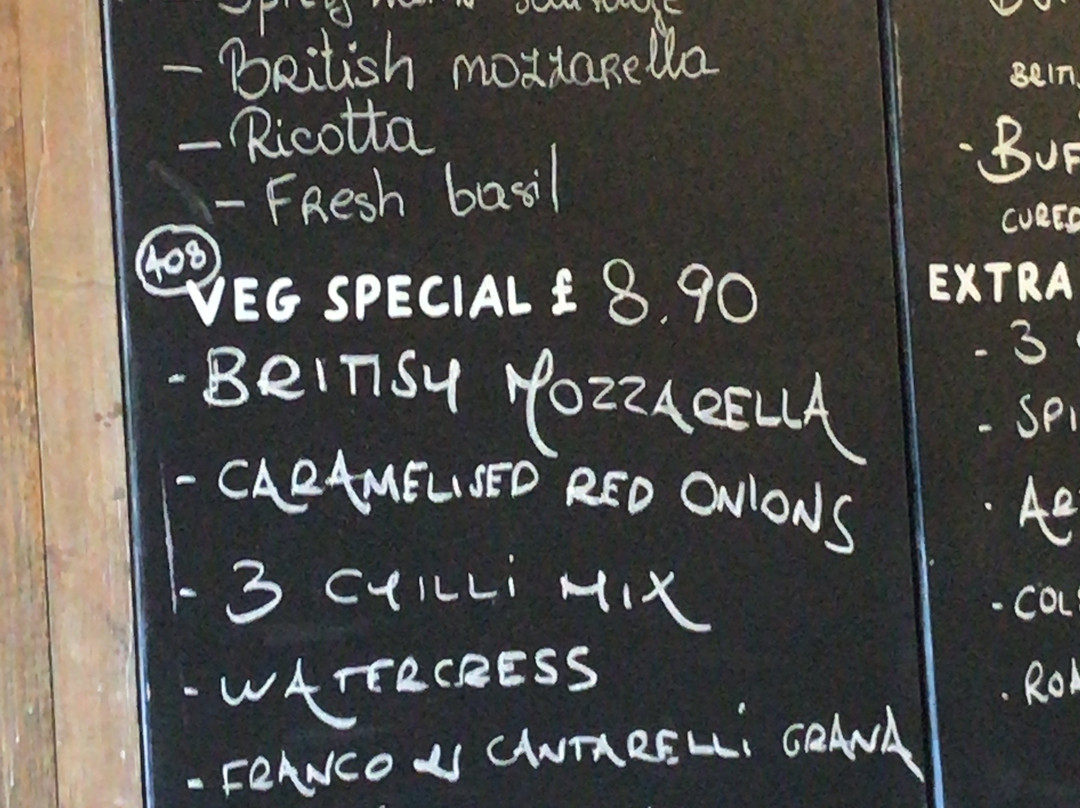 - British mozzarella
- Ricotta
- Fresh basil
408
VEG SPECIAL £ 8.90
- BRITISH MOZZARELLA
- CARAMELISED RED ONIONS
- 3 CHILLI MIX
- WATERCRESS
- FRANCO CANTARELLi GRANA
BRITI
- BUF
CURED
EXTRA
- 3
- SPI
- COL
- ROA